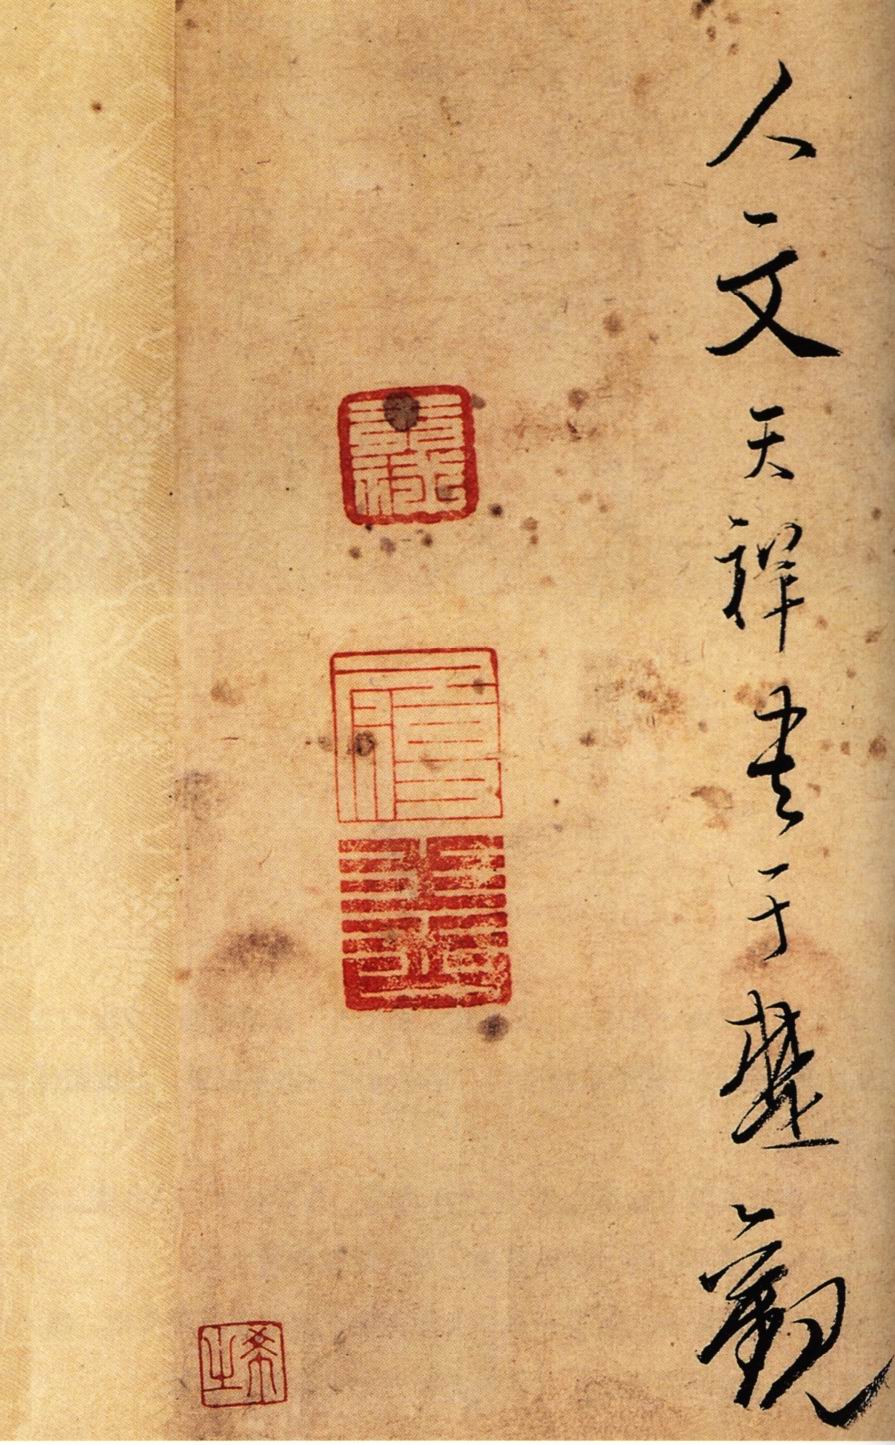 人文天祥書于楚觀
希之